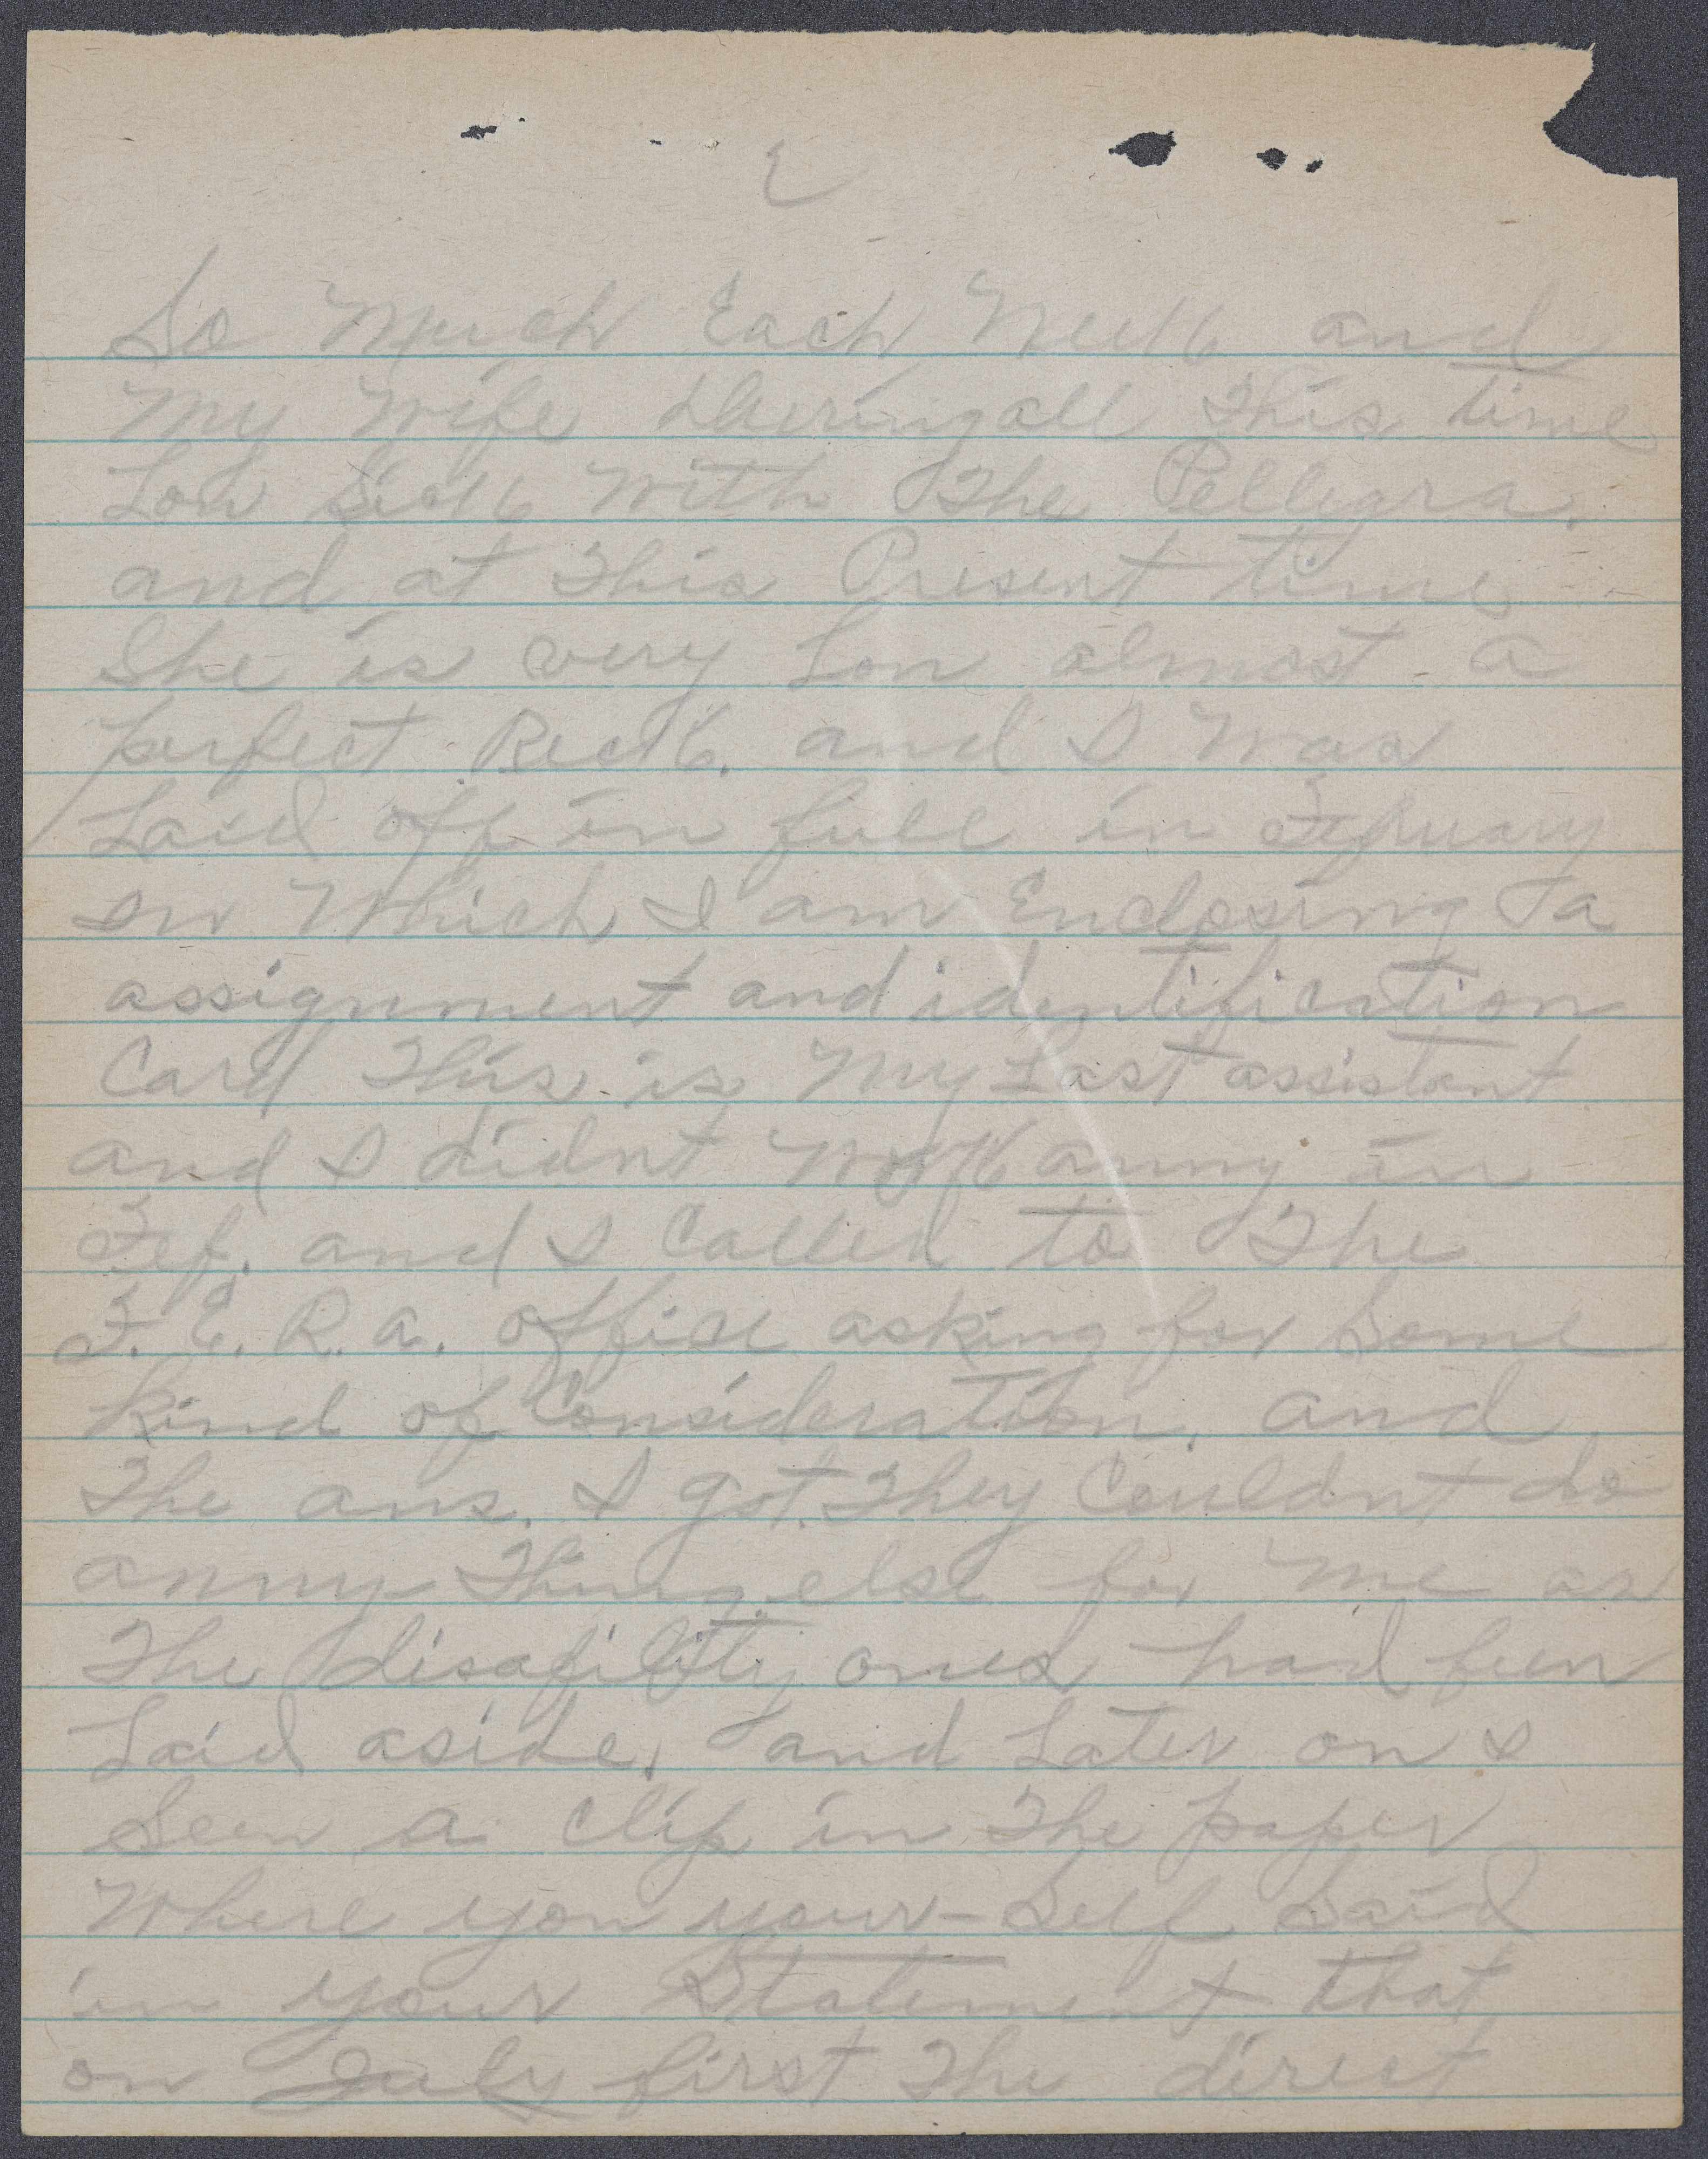 2
So Much Each Week and
My Wife During all This time
Low Sick With The Pellegra.
and at This Present time
She is very Low almost a
perfect Reck. and I Was
Laid off in full in Febuary
on Which I am Enclosing a
assignment and identification
Card This is My Last assistant
and I didnt Work anny in
Feb. and I Called to The
F. E. R. a. office asking for Some
kind of Consideration. and
The ans. I got. They Couldnt do
anny Thing else for Me as
The disability ones had been
Laid aside, and Later on I
Seen a Clip in The paper
Where you your-Self Said
in your Statement that
on July first The direct